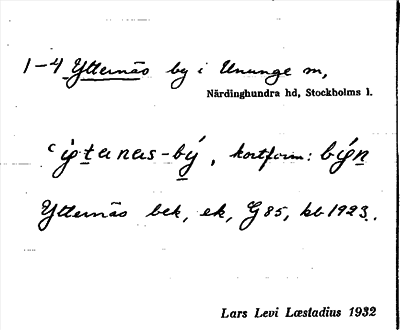 1-4 Ytternäs by i Ununge sn,
Närdinghundra hd, Stockholms l.
kortform: býn
Ytternäs bek, ek, G85, kb 1923.
Lars Levi Læstadius 1932